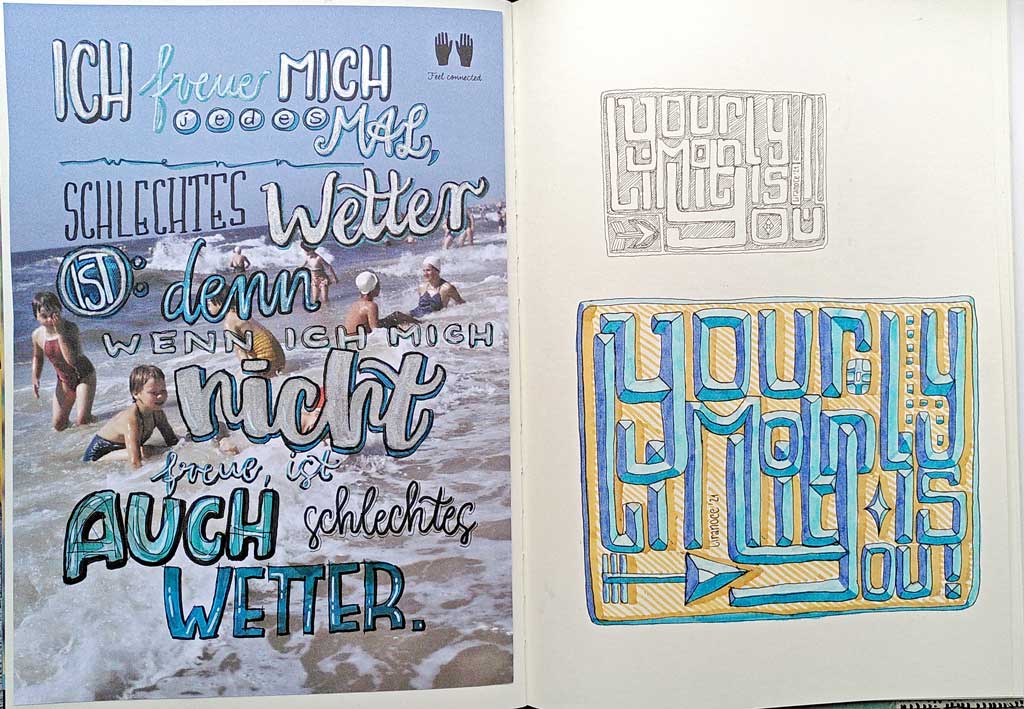 Feel connected
ICH freue MICH
jedes MAL,
wenn
SCHLECHTES Wetter
IST: denn
WENN ICH MICH
nicht
freue, ist
AUCH schlechtes
WETTER.
your
only
limit is
you!
your
only
limit is
you!